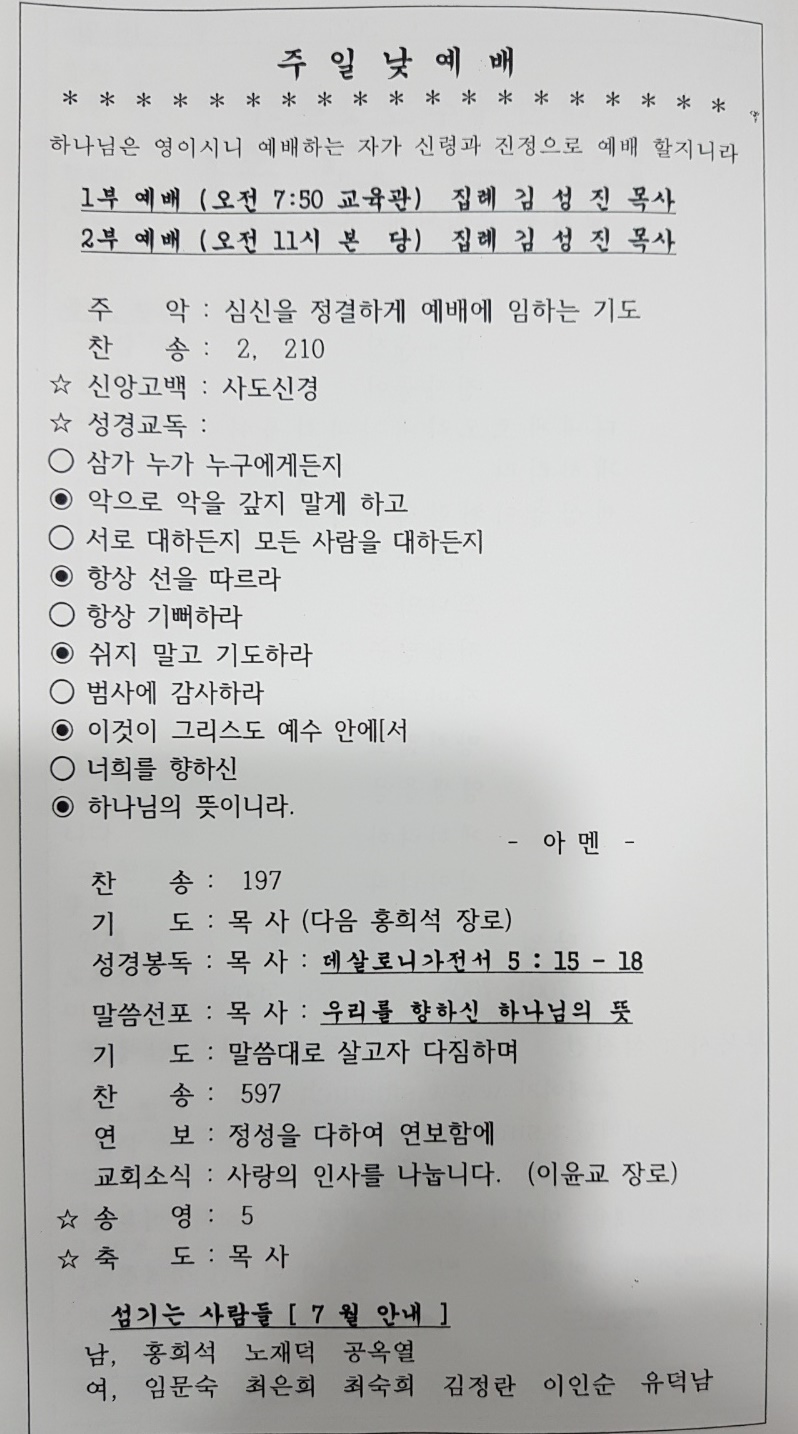 주 일 낮 예 배
* * * * * * * * * * * * * * * * * * *
하나님은 영이시니 예배하는 자가 신령과 진정으로 예배 할지니라
1부 예배 (오전 7:50 교육관) 집례 김 성 진 목사
2부 예배 (오전 11시 본 당) 집례 김 성 진 목사
주 악 : 심신을 정결하게 예배에 임하는 기도
찬 송 : 2, 210
☆ 신앙고백 : 사도신경
☆ 성경교독 :
○ 삼가 누가 누구에게든지
◉ 악으로 악을 갚지 말게 하고
○ 서로 대하든지 모든 사람을 대하든지
◉ 항상 선을 따르라
○ 항상 기뻐하라
◉ 쉬지 말고 기도하라
○ 범사에 감사하라
◉ 이것이 그리스도 예수 안에[서
○ 너희를 향하신
◉ 하나님의 뜻이니라.
- 아 멘 -
찬 송 : 197
기 도 : 목 사 (다음 홍희석 장로)
성경봉독 : 목 사 : 데살로니가전서 5 : 15 - 18
말씀선포 : 목 사 : 우리를 향하신 하나님의 뜻
기 도 : 말씀대로 살고자 다짐하며
찬 송 : 597
연 보 : 정성을 다하여 연보함에
교회소식 : 사랑의 인사를 나눕니다. (이윤교 장로)
☆ 송 영 : 5
☆ 축 도 : 목 사
섬기는 사람들 [ 7 월 안내 ]
남, 홍희석 노재덕 공옥열
여, 임문숙 최은희 최숙희 김정란 이인순 유덕남